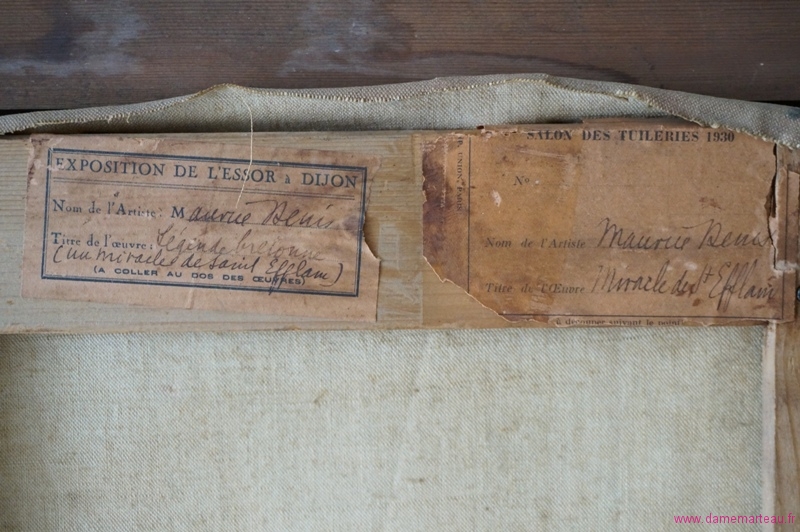 EXPOSITION DE L'ESSOR à DIJON
Nom de l'Artiste: Maurice Denis
Titre de l'œuvre: Légende bretonne
(un miracle de Saint Efflam)
(A COLLER AU DOS DES ŒUVRES)
SALON DES TUILERIES 1930
No
Nom de l'Artiste Maurice Denis
Titre de l'Œuvre Miracle de St Efflam
à découper suivant le point
www.damemarteau.fr